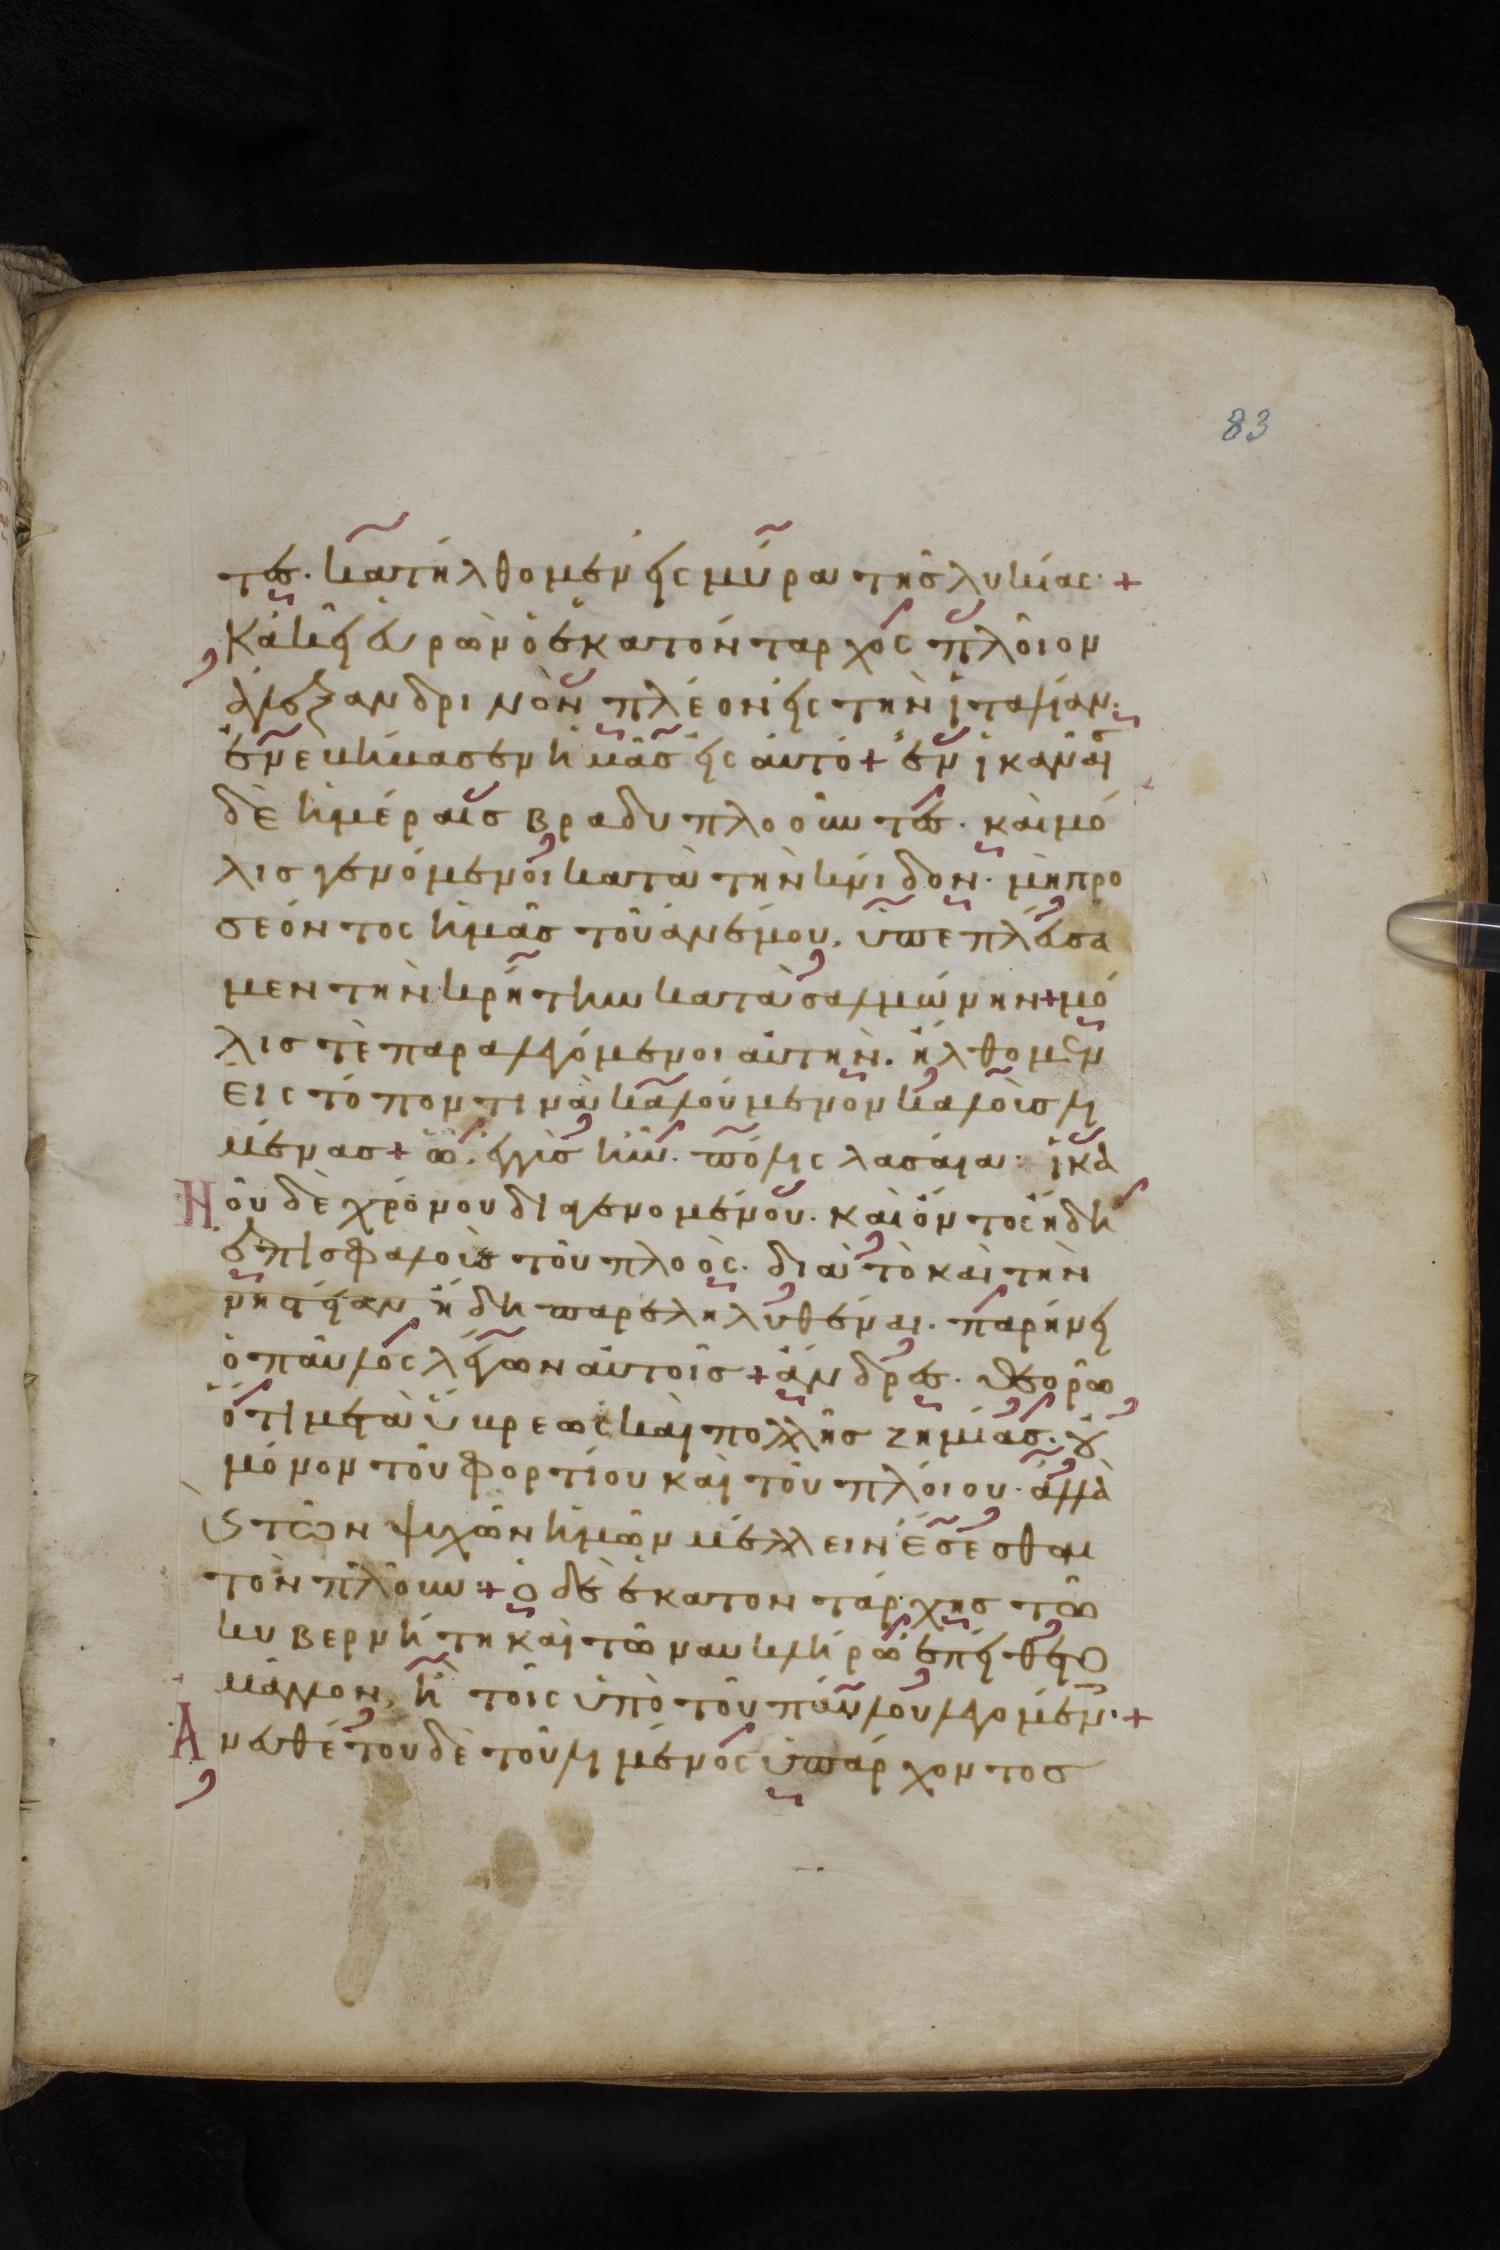 83
τες. κατήλθομεν εἰς μύρα τῆς λυκίας· +
Κἀκεῖ εὑρὼν ὁ ἑκατόνταρχος πλοῖον
ἀλεξανδρινὸν πλέον εἰς τὴν ἰταλίαν·
ἐνεκήκασεν ἡμᾶς εἰς αὐτό + ἐν ἱκαναῖ
δὲ ἡμέραις βραδυπλοοῦντες. καὶ μό
λις γενόμενοι κατὰ τὴν κνίδον· μὴ προ
σεόντος ἡμᾶς τοῦ ἀνέμου, ὑπεπλέσα
μεν τὴν κρήτην κατὰ σαλμώνην + μό
λις τὲ παραλεγόμενοι αὐτὴν. ἤλθομεν
εἰς τόπον τινὰ καλούμενον καλοὺς λι
μένας + ὧ. ἐγγὺς ἦν. πόλις λασαία + ἱκα
Νοῦ δὲ χρόνου διαγενομένου. καὶ ὄντος ἤδη
ἐπισφαλοῦς τοῦ πλοὸς. διὰ τὸ καὶ τὴν
νηστείαν ἤδη παρεληλυθέναι. παρήνει
ὁ παῦλος λέγων αὐτοῖς + ἄνδρες. θεορῶ
ὅτι μετὰ ὕβρεως καὶ πολλῆς ζημίας. οὐ
μόνον τοῦ φορτίου καὶ τοῦ πλοίου. ἀλλὰ
καὶ τῶν ψυχῶν ἡμῶν μέλλειν ἔσεσθαι
τὸν πλοῦν + ὁ δὲ ἑκατοντάρχης τῶ
κυβερνήτη καὶ τῶ ναυκλήρω ἐπείθετο
μᾶλλον, ἢ τοῖς ὑπὸ τοῦ παύλου λεγομέν· +
Ἀνευθέτου δὲ τοῦ λιμένος ὑπάρχοντος